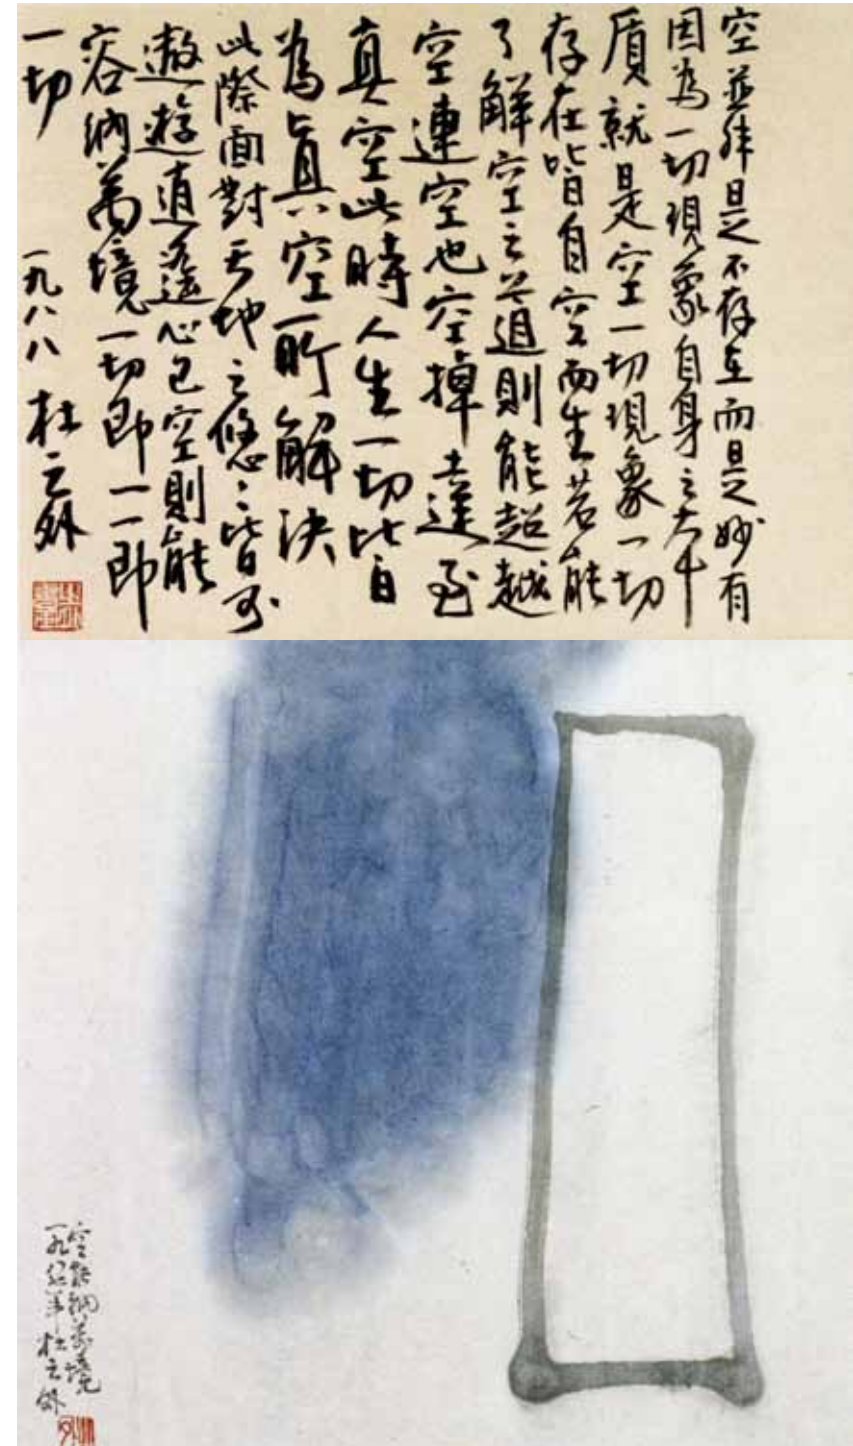 空並非是不存在而是妙有
因為一切現象自身之本
质就是空一切現象一切
存在皆自空而生若能
了解空之道則能超越
空連空也空掉達至
真空此時人生一切皆
為真空所解決
此際面對天地之悠〻皆可
遨遊逍遙心已空則能
容納萬境一切即一一即
一切 一九八八 杜之外
空能納萬境
一九八年 杜之外